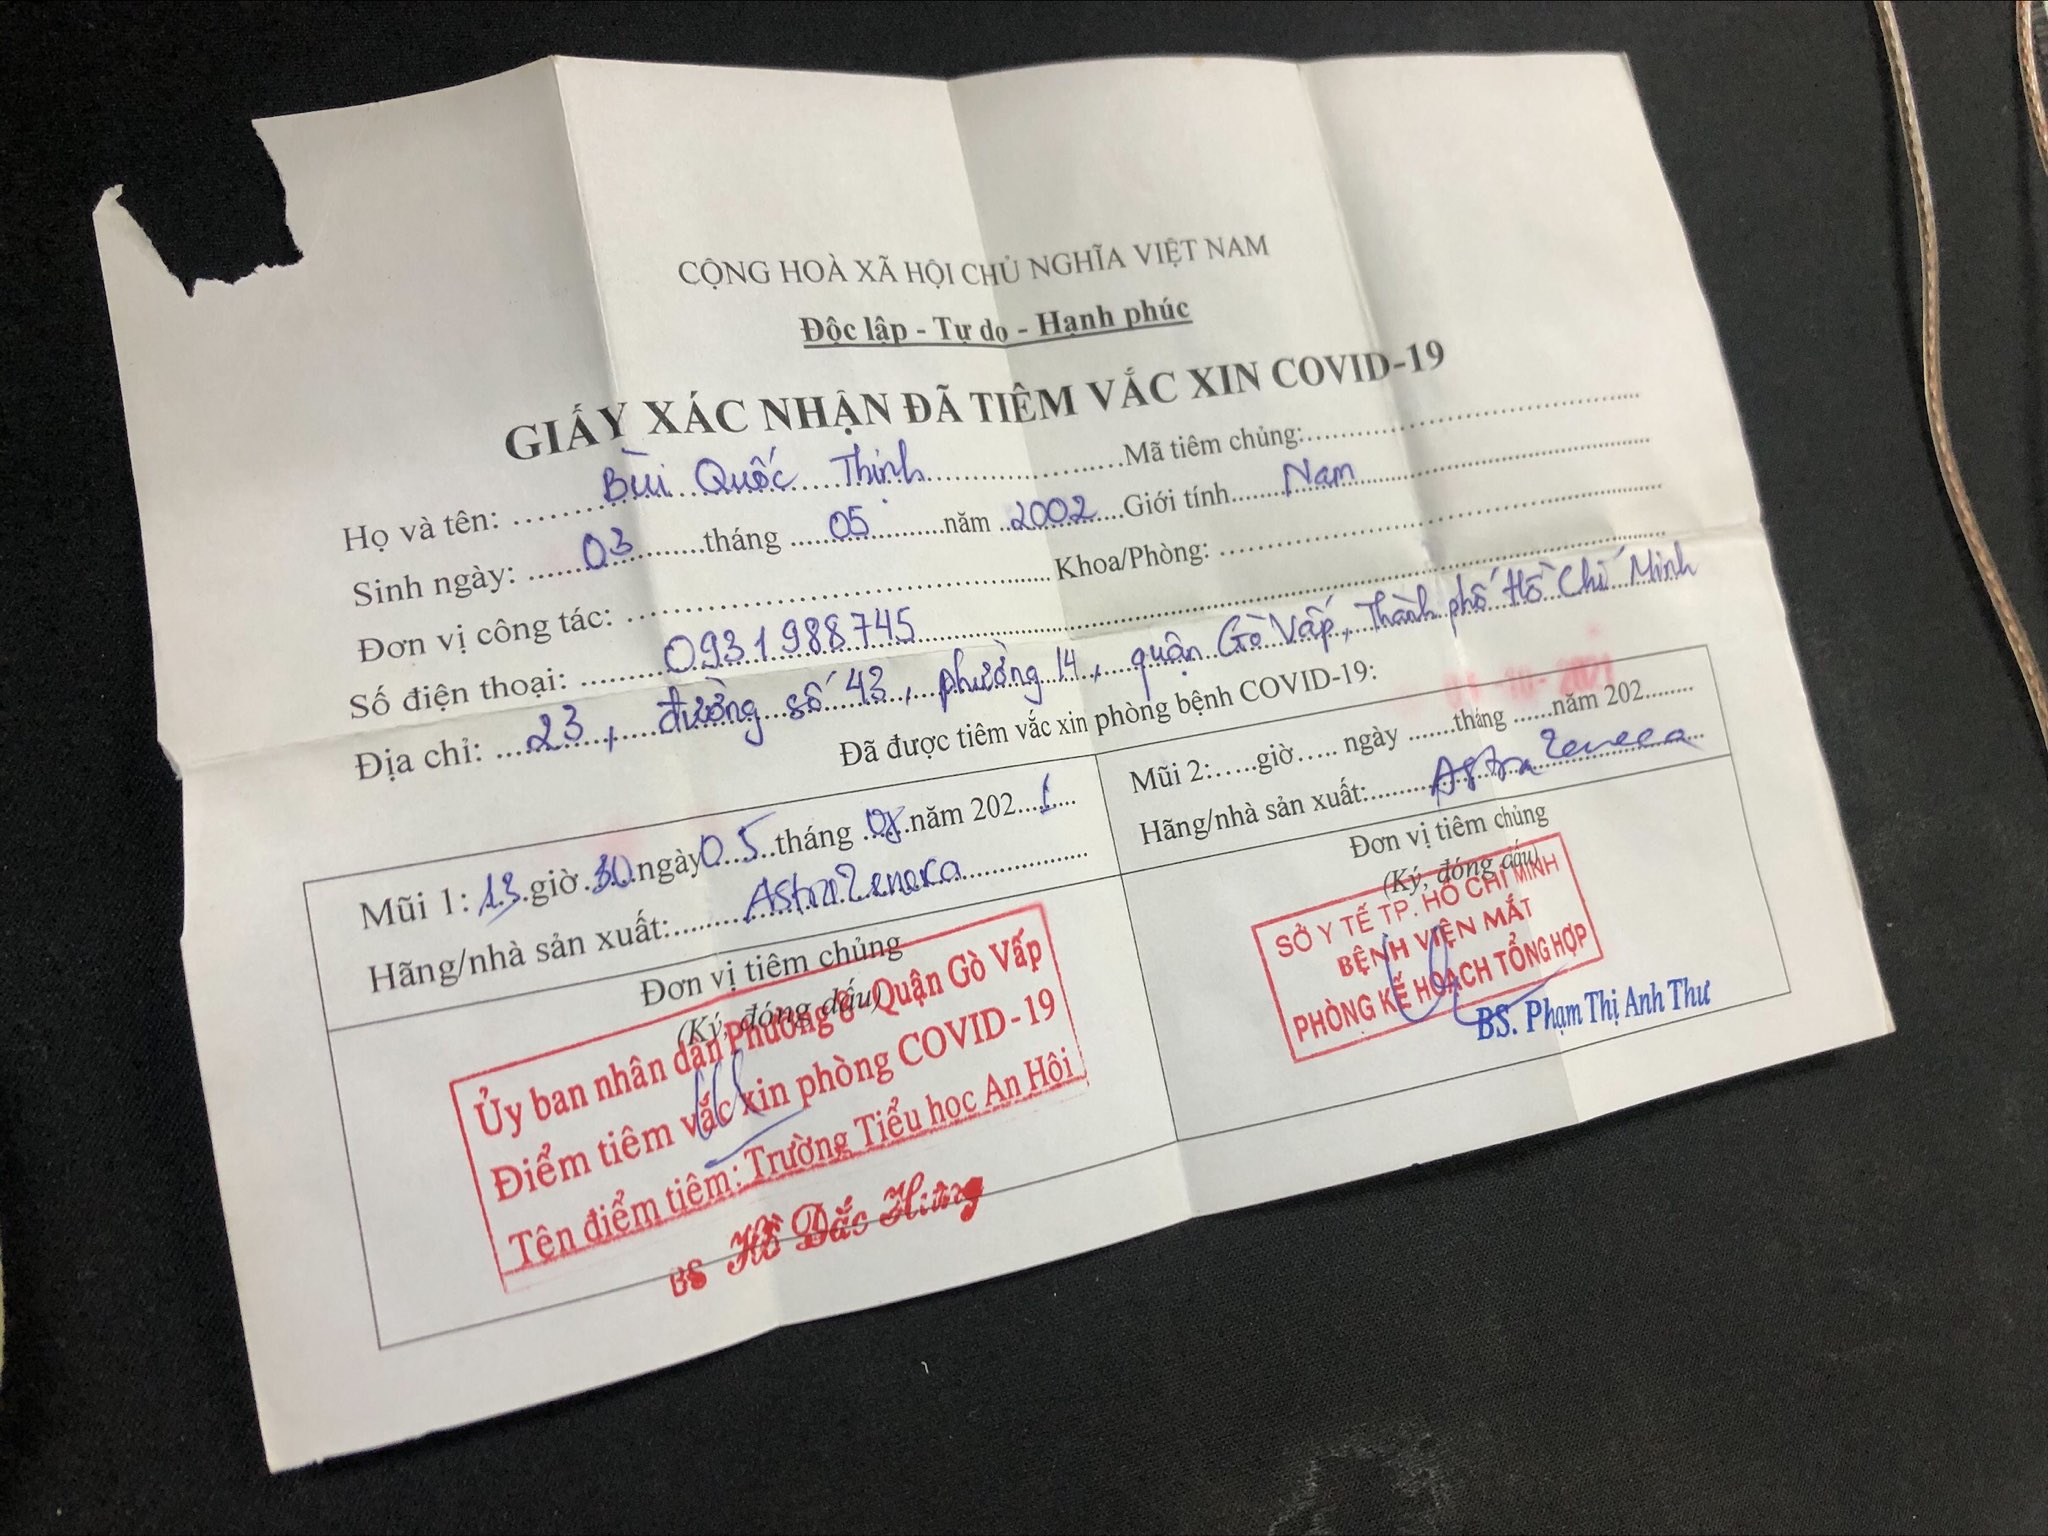 CỘNG HOÀ XÃ HỘI CHỦ NGHĨA VIỆT NAM
Độc lập - Tự do - Hạnh phúc
GIẤY XÁC NHẬN ĐÃ TIÊM VẮC XIN COVID-19
Họ và tên: Bùi Quốc Thịnh Mã tiêm chủng:
Sinh ngày: 03 tháng 05 năm 2002 Giới tính Nam
Đơn vị công tác: Khoa/Phòng:
Số điện thoại: 0931988745
Địa chỉ: 23, đường số 43, phường 14, quận Gò Vấp, Thành phố Hồ Chí Minh
Đã được tiêm vắc xin phòng bệnh COVID-19:
Mũi 1: 13 giờ 30 ngày 05 tháng 08 năm 2021
Hãng/nhà sản xuất: AstraZeneca
Đơn vị tiêm chủng
(Ký, đóng dấu)
Ủy ban nhân dân Phường 8 Quận Gò Vấp
Điểm tiêm vắc xin phòng COVID-19
Tên điểm tiêm: Trường Tiểu học An Hội
BS Hồ Đắc Hưng
10-2021
Mũi 2: giờ ngày tháng năm 202
Hãng/nhà sản xuất: AstraZeneca
Đơn vị tiêm chủng
(Ký, đóng dấu)
SỞ Y TẾ TP. HỒ CHÍ MINH
BỆNH VIỆN MẮT
PHÒNG KẾ HOẠCH TỔNG HỢP
BS. Phạm Thị Anh Thư